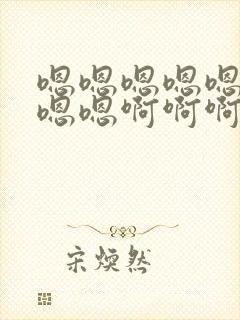 嗯嗯嗯嗯嗯
嗯嗯啊啊啊
宋煥然